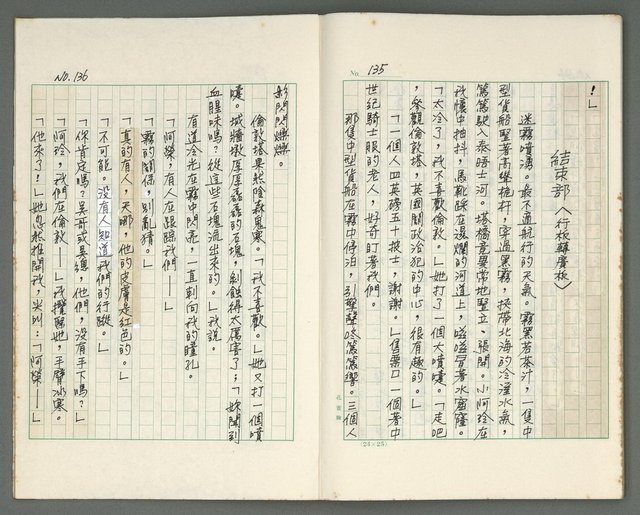 No. 135
！」
結束部〈行板轉廣板〉
迷霧噴湧。最不適航行的天氣。霧黑若茶汁，一隻中
型貨船竪著高聳桅杆，穿過黑霧，挾帶北海的冷溼水氣，
篤篤駛入泰晤士河。塔橋竟異常地豎立、張開。小阿玲在
我懷中抽抖，馬靴踩在浸爛的河道上，嗞嗞冒著水窟窿。
「太冷了，我不喜歡倫敦。」她打了一個大噴嚏。「走吧
，參觀倫敦塔，英國閙政治犯的中心，很有趣的。」
「一個人四英磅五十披士，謝謝。」售票口一個著中
世紀騎士服的老人，好奇盯著我們。
那隻中型貨船在霧中停泊，引擎聲咚篤篤響。三個人
(24×25)
No. 136
影閃閃爍爍。
倫敦塔果然陰森鬼寒。「我不喜歡。」她又打一個噴
嚏。城牆墩厚厚磊磊的石塊，剝蝕得太厲害了；「妳聞到
血腥味嗎？從這些石塊流出來的。」我說。
有道冷光在霧中閃亮，一直刺向我的瞳孔。
「阿榮，有人在跟踪我們──」
「霧的關係，別亂猜。」
「真的有人，天哪，他的皮膚是紅色的。」
「不可能。沒有人知道我們的行蹤。」
「你肯定嗎？吳哥或吳總，他們，沒有手下嗎？」
「阿玲，我們在倫敦──」我攬緊她，手臂冰寒。
「他來了！」她忽然推開我，尖叫：「阿榮──」